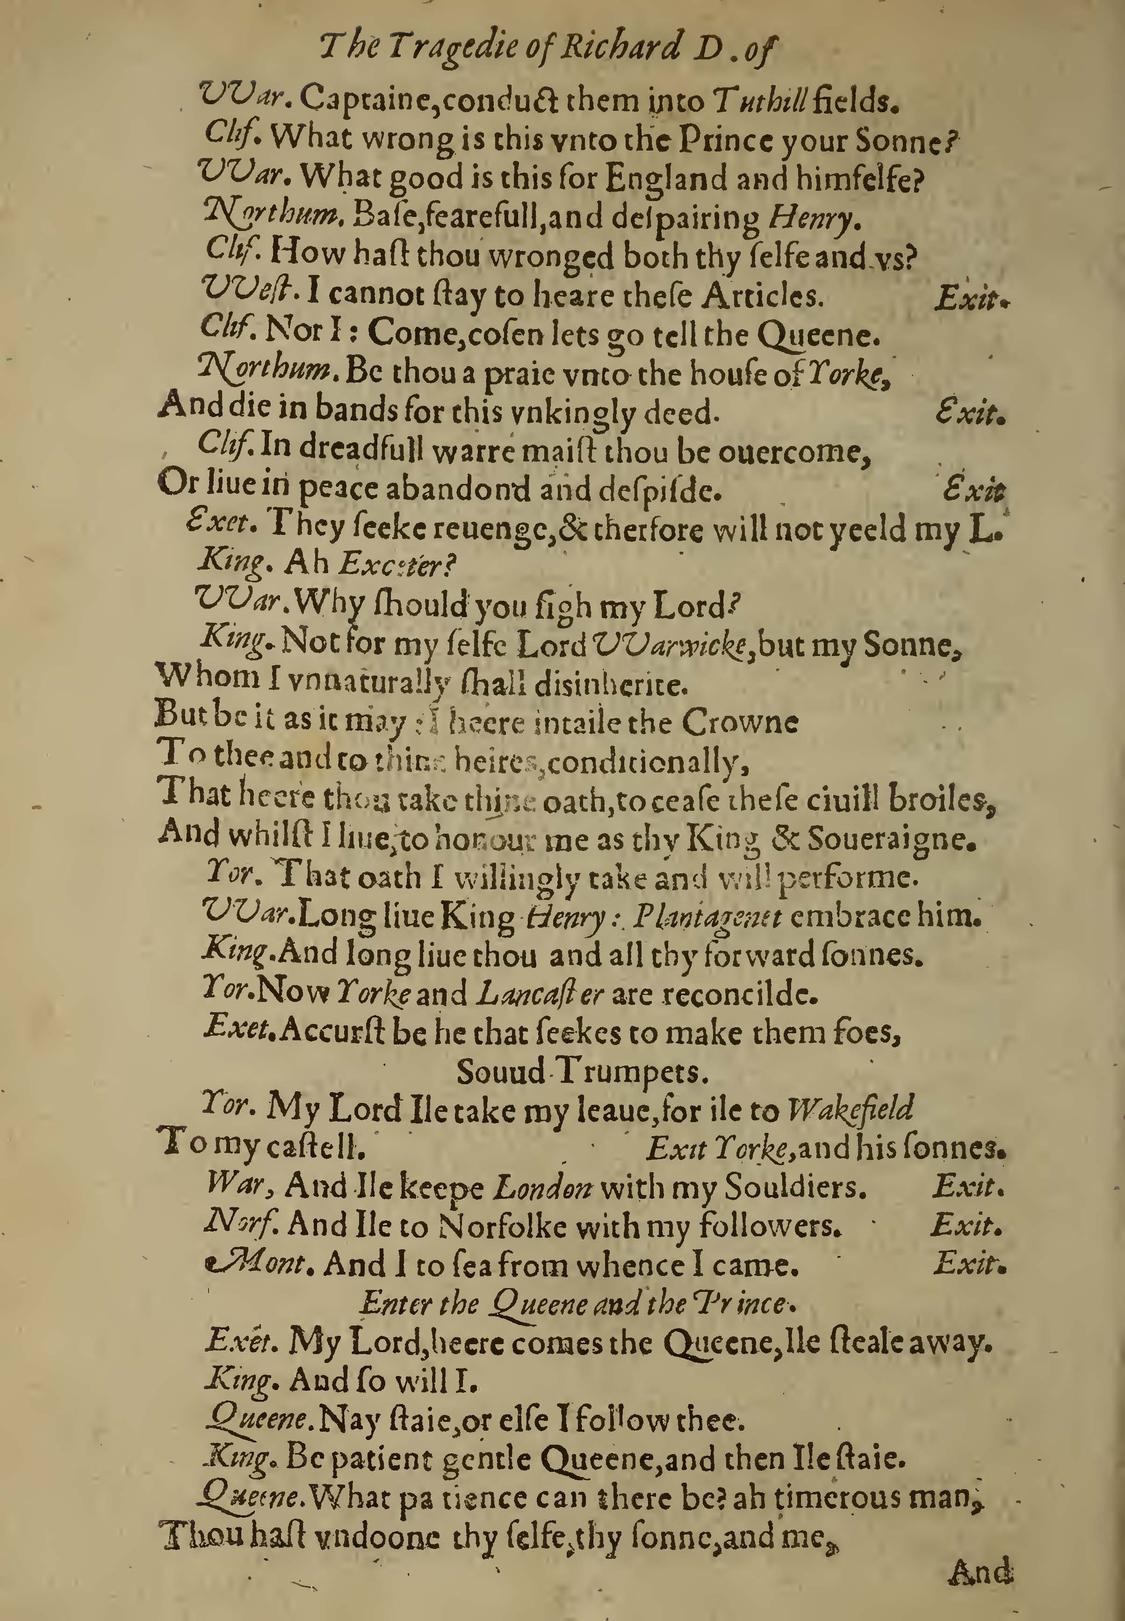 The Tragedie of Richard D. of
VVar. Captaine,conduct them into Tuthill fields.
Clif. What wrong is this vnto the Prince your Sonne?
VVar. What good is this for England and himſelfe?
Northum. Baſe,fearefull,and deſpairing Henry.
Clif. How haſt thou wronged both thy ſelfe and vs?
VVeſt. I cannot ſtay to heare theſe Articles. Exit.
Clif. Nor I : Come,coſen lets go tell the Queene.
Northum. Be thou a praie vnto the houſe of Yorke,
And die in bands for this vnkingly deed. Exit.
Clif. In dreadfull warre maiſt thou be ouercome,
Or liue in peace abandond and deſpiſde. Exit
Exet. They ſeeke reuenge,& therfore will not yeeld my L.
King. Ah Exceter?
VVar. Why ſhould you ſigh my Lord?
King. Not for my ſelfe Lord VVarwicke,but my Sonne,
Whom I vnnaturally ſhall disinherite.
But be it as it may : I heere intaile the Crowne
To thee and to thine heires,conditionally,
That heere thou take thine oath,to ceaſe theſe ciuill broiles,
And whilſt I liue,to honour me as thy King & Soueraigne.
Yor. That oath I willingly take and will performe.
VVar. Long liue King Henry : Plantagenet embrace him.
King. And long liue thou and all thy forward ſonnes.
Yor. Now Yorke and Lancaſter are reconcilde.
Exet. Accurſt be he that ſeekes to make them foes,
Souud Trumpets.
Yor. My Lord Ile take my leaue,for ile to Wakefield
To my caſtell. Exit Yorke,and his ſonnes.
War, And Ile keepe London with my Souldiers. Exit.
Norf. And Ile to Norfolke with my followers. Exit.
Mont. And I to ſea from whence I came. Exit.
Enter the Queene and the Prince.
Exet. My Lord,heere comes the Queene,Ile ſteale away.
King. And ſo will I.
Queene. Nay ſtaie,or elſe I follow thee.
King. Be patient gentle Queene,and then Ile ſtaie.
Queene. What pa tience can there be? ah timerous man,
Thou haſt vndoone thy ſelfe,thy ſonne,and me,
And